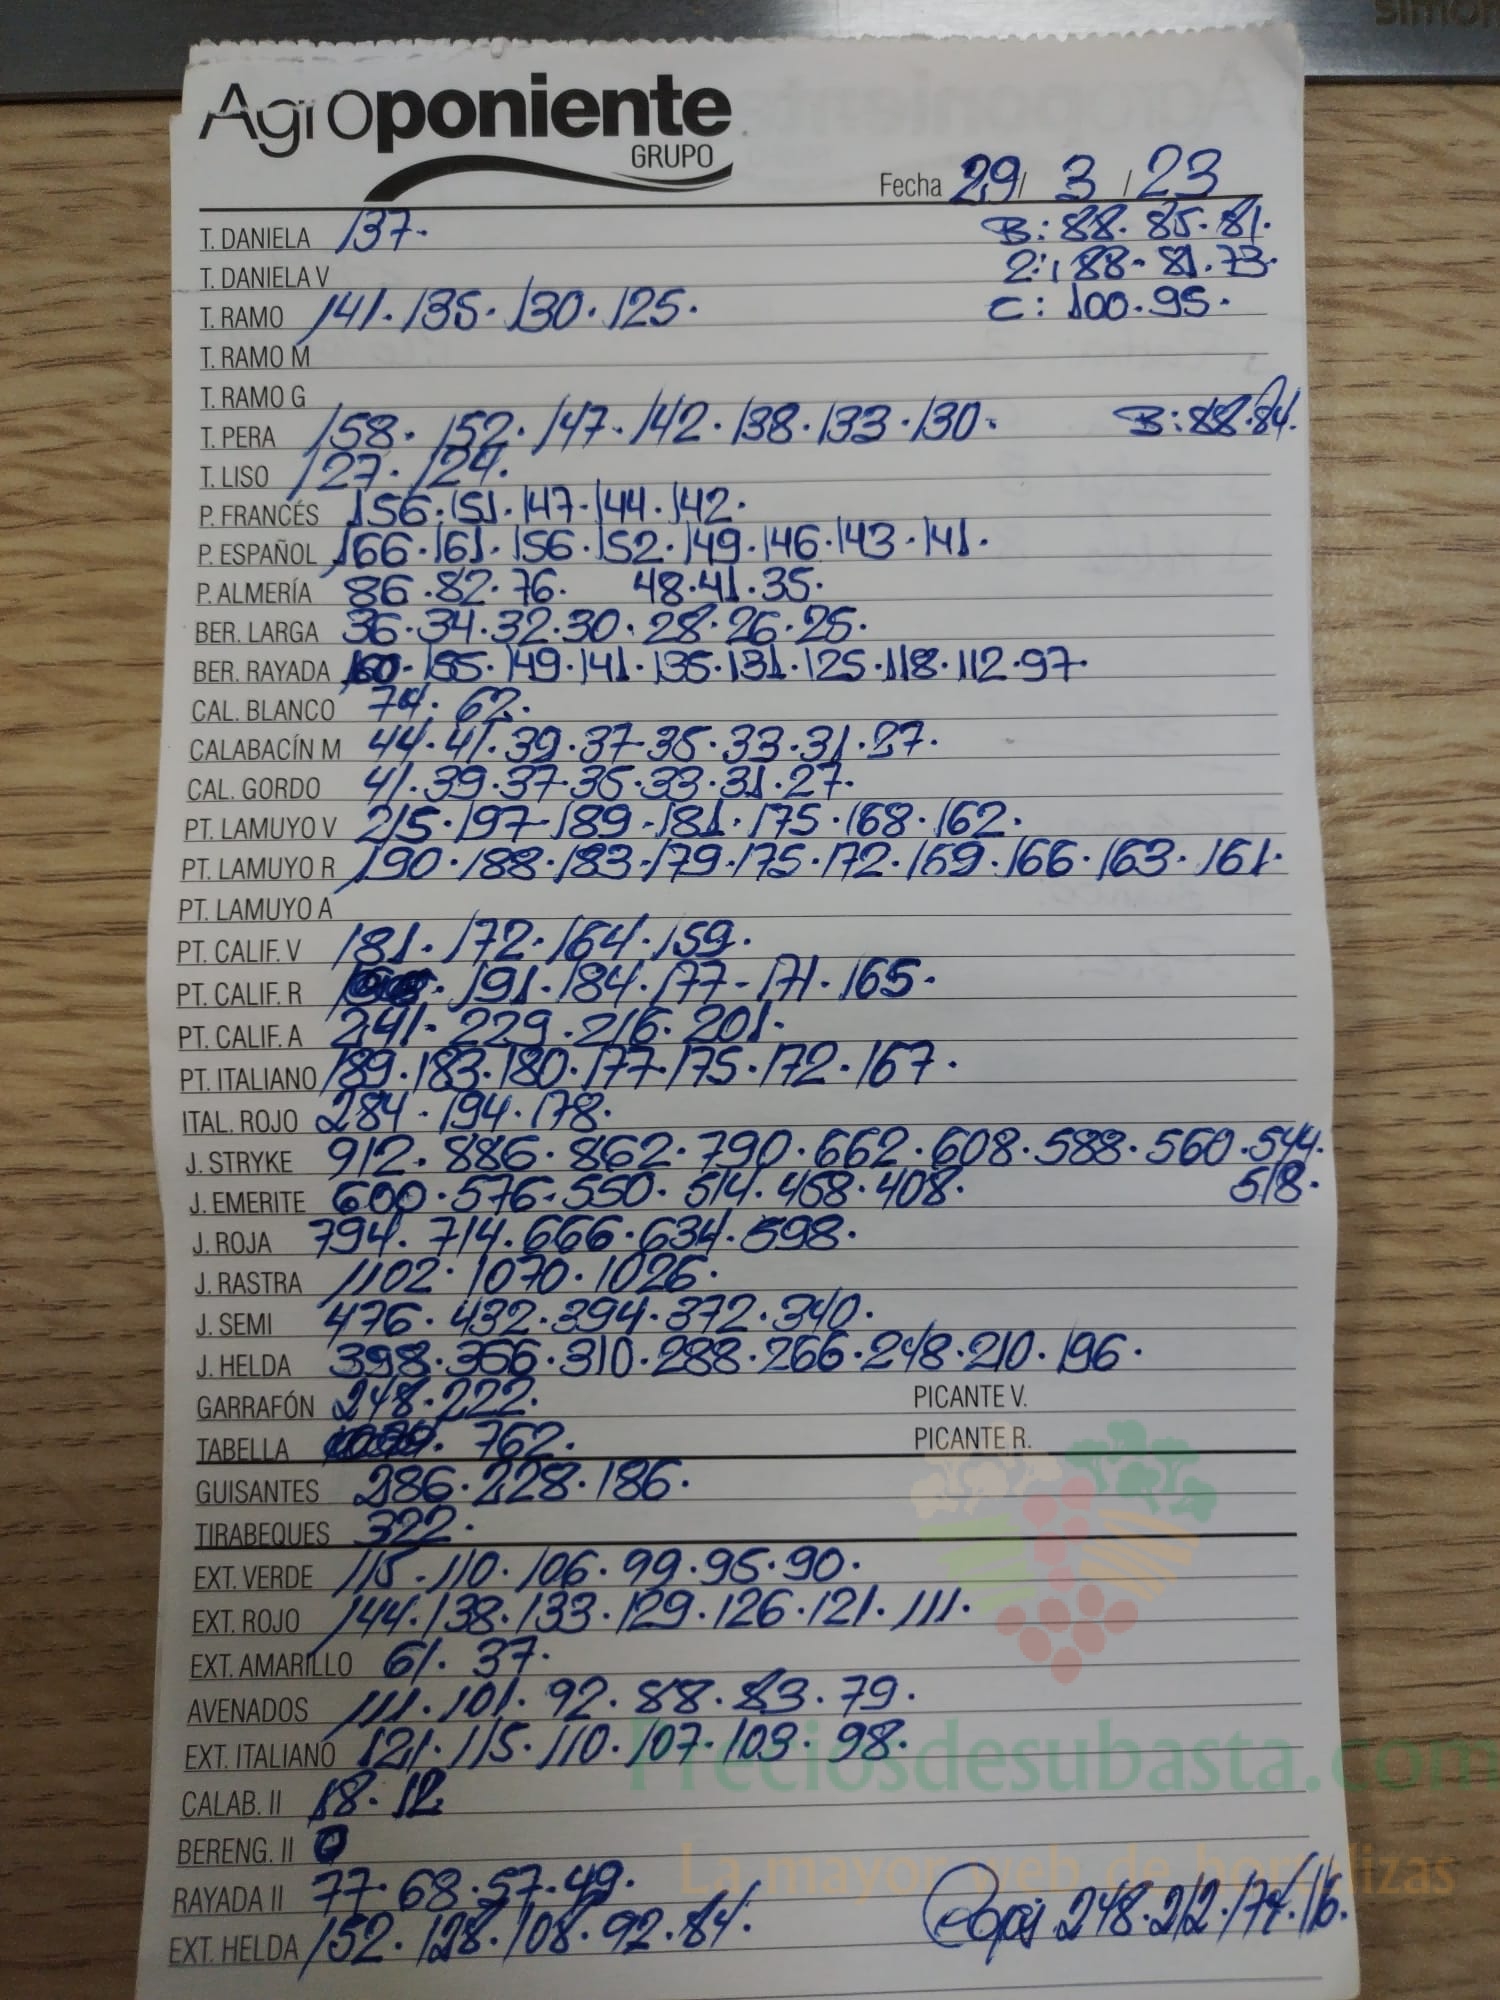 simon
Agroponiente
GRUPO
Fecha 29/ 3 / 23
T. DANIELA 137. B: 88. 85. 81.
T. DANIELA V 2: 88. 81. 73.
T. RAMO 141. 135. 130. 125. C: 100. 95.
T. RAMO M
T. RAMO G
T. PERA 158. 152. 147. 142. 138. 133. 130. B: 88. 84.
T. LISO 127. 124.
P. FRANCÉS 156. 151. 147. 144. 142.
P. ESPAÑOL 166. 161. 156. 152. 149. 146. 143. 141.
P. ALMERÍA 86. 82. 76. 48. 41. 35.
BER. LARGA 36. 34. 32. 30. 28. 26. 25.
BER. RAYADA 160. 155. 149. 141. 135. 131. 125. 118. 112. 97.
CAL. BLANCO 74. 62.
CALABACÍN M 44. 41. 39. 37. 35. 33. 31. 27.
CAL. GORDO 41. 39. 37. 35. 33. 31. 27.
PT. LAMUYO V 215. 197. 189. 181. 175. 168. 162.
PT. LAMUYO R 190. 188. 183. 179. 175. 172. 169. 166. 163. 161.
PT. LAMUYO A
PT. CALIF. V 181. 172. 164. 159.
PT. CALIF. R 191. 184. 177. 171. 165.
PT. CALIF. A 241. 229. 216. 201.
PT. ITALIANO 189. 183. 180. 177. 175. 172. 167.
ITAL. ROJO 284. 194. 178.
J. STRYKE 912. 886. 862. 790. 662. 608. 588. 560. 544.
518.
J. EMERITE 600. 576. 550. 514. 468. 408.
J. ROJA 794. 714. 666. 634. 598.
J. RASTRA 1102. 1070. 1026.
J. SEMI 476. 432. 394. 372. 340.
J. HELDA 398. 366. 310. 288. 266. 248. 210. 196.
GARRAFÓN 248. 222. PICANTE V.
TABELLA 762. PICANTE R.
GUISANTES 286. 228. 186.
TIRABEQUES 322.
EXT. VERDE 115. 110. 106. 99. 95. 90.
EXT. ROJO 144. 138. 133. 129. 126. 121. 111.
EXT. AMARILLO 61. 37.
AVENADOS 111. 101. 92. 88. 83. 79.
EXT. ITALIANO 121. 115. 110. 107. 103. 98.
Preciosdesubasta.com
CALAB. II 18. 12
BERENG. II 0
La mayor web de hortalizas
RAYADA II 77. 68. 57. 49.
EXT. HELDA 152. 128. 108. 92. 84. 248. 212. 174. 116.